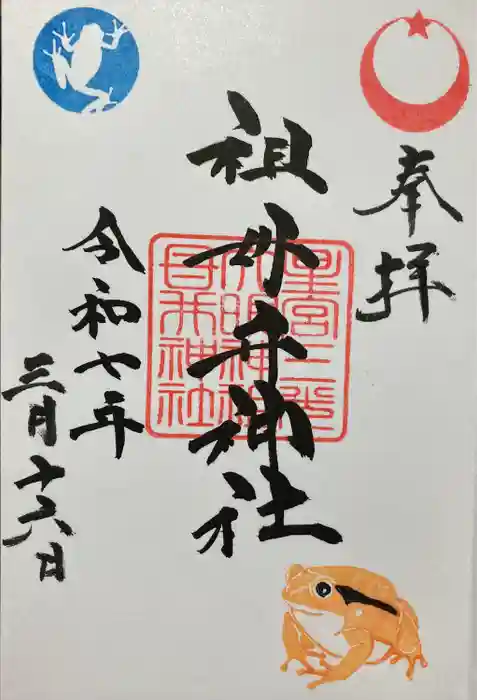 奉拝
祖母井神社
令和七年
三月十六日
星宮二
大明神祖
母井神社